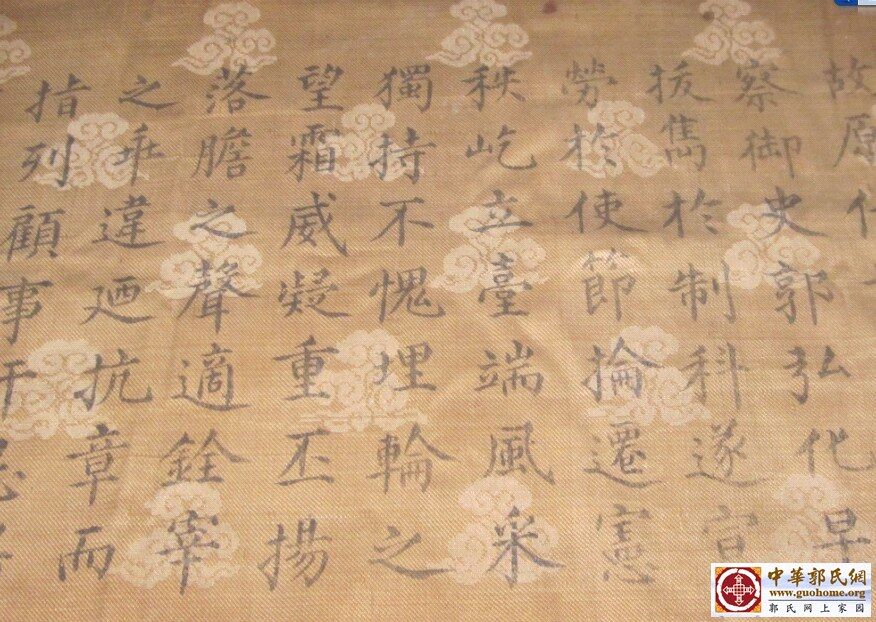 故原
察御史郭弘化早
拔雋於制科遂宣
勞於使節掄遷憲
秩屹立臺端風采
獨持不愧埋輪之
望霜威凝重丕揚
落膽之聲適銓宰
之乖違廼抗章而
指列顧事干忌
中華郭氏網
www.guohome.org
郭氏网上家园